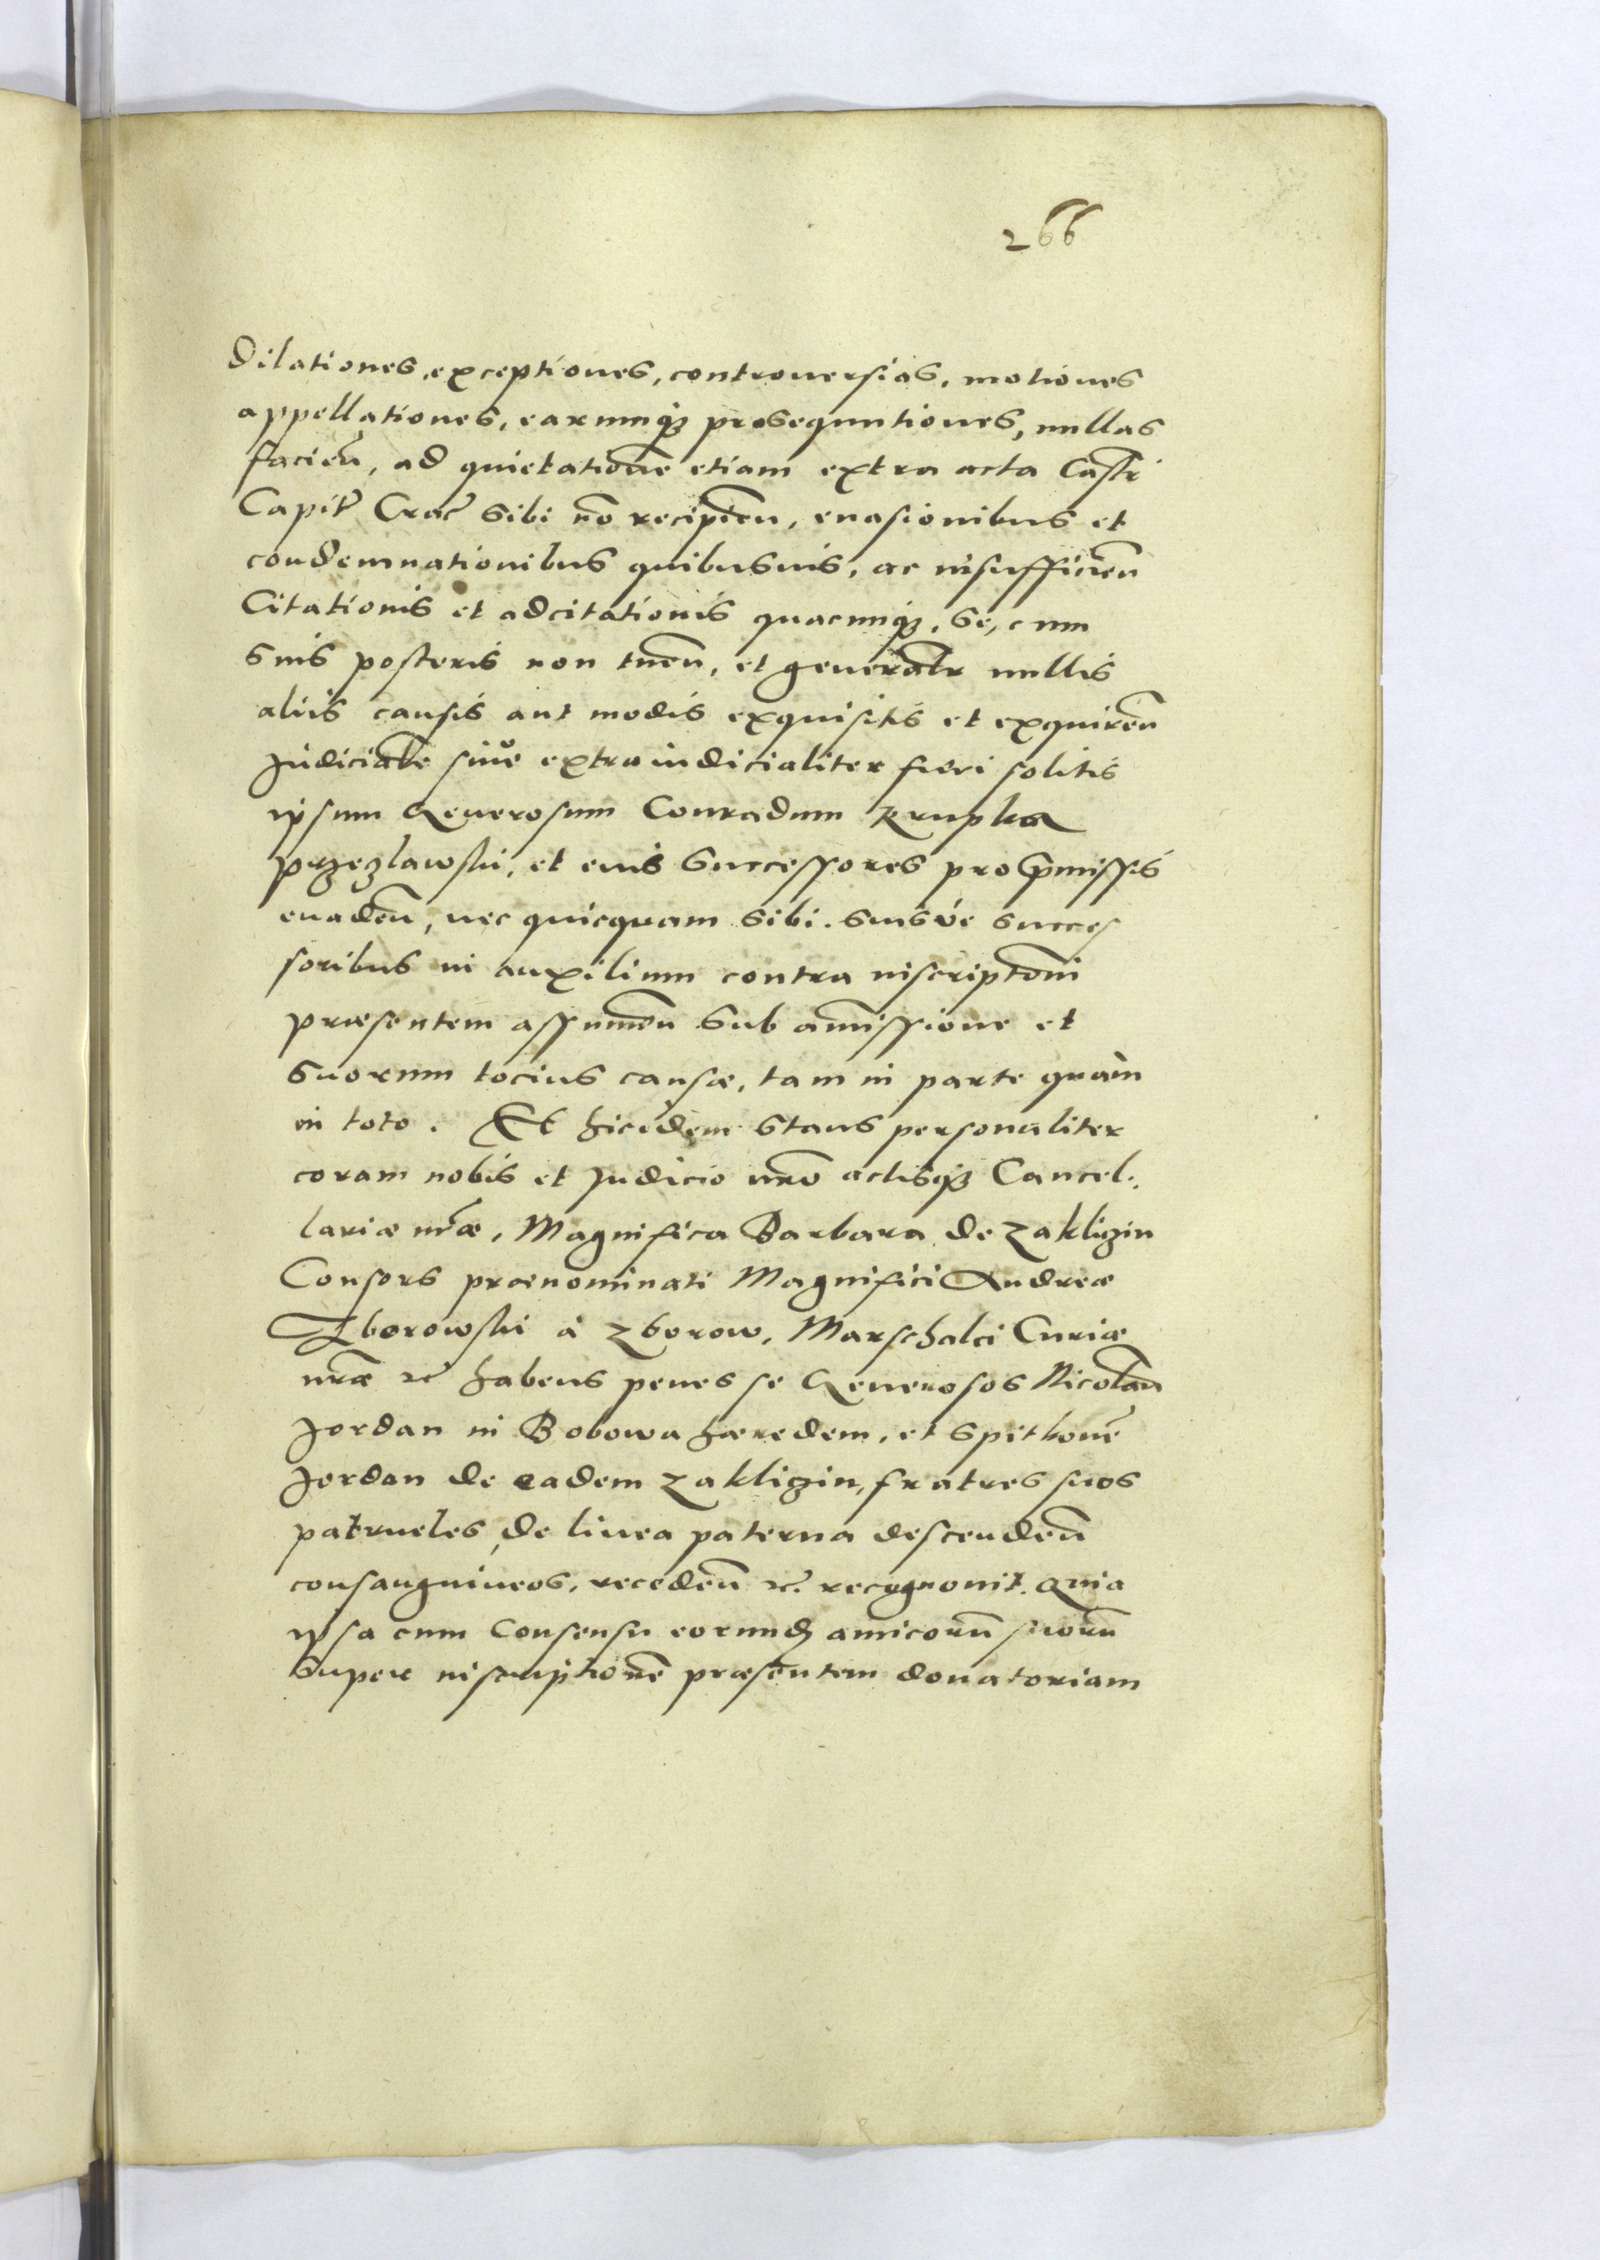 266
Dilationes, exceptiones, controuersias, motiones
appellationes, earumq₃ prosequutiones, nullas
facień, ad quietatione etiam extra acta Castri
Capit̃ Crac̃ sibi nõ recipień, euasionibus et
condemnationibus quibusuis, ac insufficień
Citationis et adcitationis quacumq₃, se, cum
suis posteris non tueń, et generalr nullis
aliis causis aut modis exquisitis et exquireń
Judicialr siue extraiudicialiter fieri solitis
ipsum Generosum Conradum Krupka
Przeczlawski, et eius successores pro p̃missis
euadeń, nec quicquam sibi, suisve succes
soribus in auxilium contra inscriptõni
praesentem assumeń sub amissione et
suorum tocius causae, tam in parte quàm
in toto. Et hicidem stans personaliter
coram nobis et Judicio nrõ actisq₃ Cancel,
lariae nrãe, Magnifica Barbara de Zakliczin
Consors praenominati Magnifici Andreae
Zborowski à Zborow, Marschalci Curiae
nrãe etc̃ habens penes se Generosos Nicolaũ
Jordan in Bobowa haeredem, et Spitkonẽ
Jordan de eadem Zakliczin, fratres suos
patrueles, de linea paterna descendeń
consanguineos, recedeń etc̃. recognouit. Quia
ipsa cum Consensu eorumd₃ amicorũ suorũ
super inscriptionẽ praesentem donatoriam